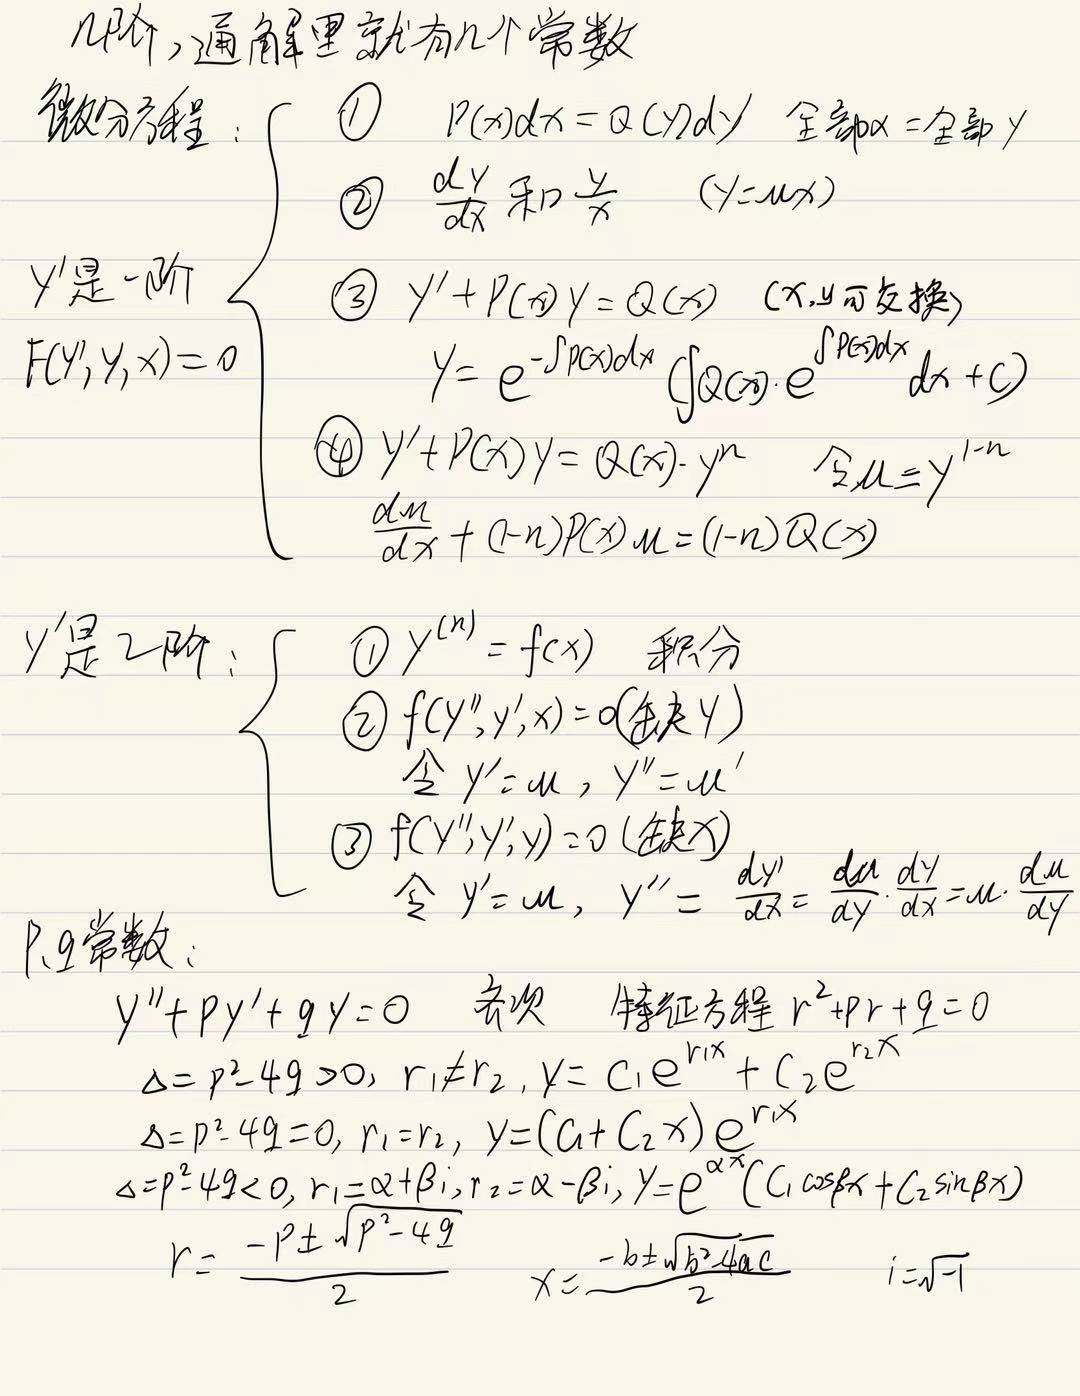 n阶,通解里就有n个常数
微分方程:
① P(x)dx=Q(y)dy 全部x=全部y
② dy/dx 和 y/x (y=ux)
y'是一阶
③ y'+P(x)y=Q(x) (x,y可交换)
F(y',y,x)=0
y=e^{-∫P(x)dx}(∫Q(x)·e^{∫P(x)dx}dx+C)
④ y'+P(x)y=Q(x)·y^n 令u=y^{1-n}
du/dx+(1-n)P(x)u=(1-n)Q(x)
y'是2阶:
① y^{(n)}=f(x) 积分
② f(y'',y',x)=0(缺y)
令 y'=u, y''=u'
③ f(y'',y',y)=0(缺x)
令 y'=u, y''=dy'/dx=du/dy·dy/dx=u·du/dy
P、q常数:
y''+py'+qy=0 齐次 特征方程 r²+pr+q=0
Δ=p²-4q>0, r₁≠r₂, y=C₁e^{r₁x}+C₂e^{r₂x}
Δ=p²-4q=0, r₁=r₂, y=(C₁+C₂x)e^{r₁x}
Δ=p²-4q<0, r₁=α+βi, r₂=α-βi, y=e^{αx}(C₁cosβx+C₂sinβx)
r=(-p±√(p²-4q))/2 x=(-b±√(b²-4ac))/2 i=√-1